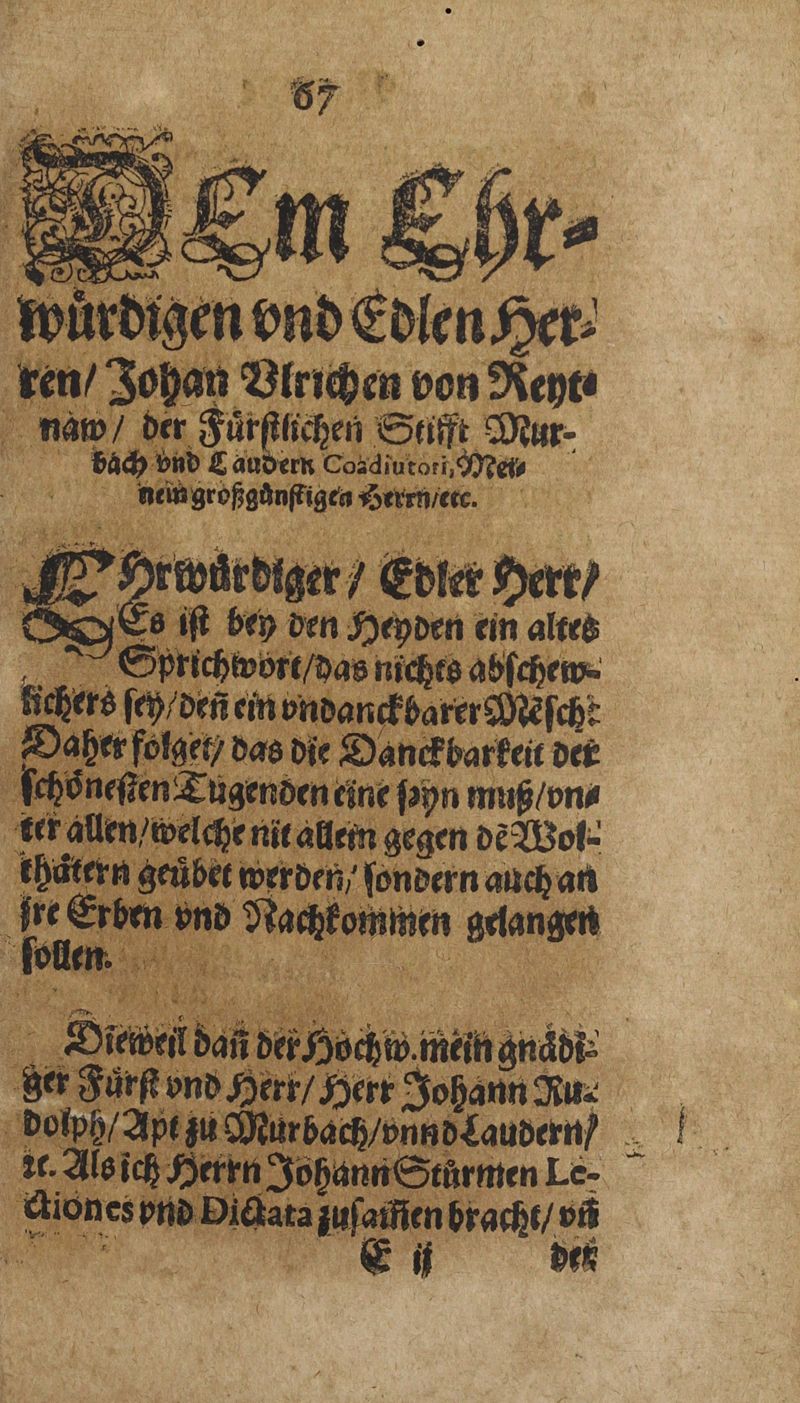 67
DEm Ehr-
würdigen vnd Edlen Her-
ren/ Johan Vlrichen von Reyt-
naw/ der Fürstlichen Stifft Mur-
bach vnd Laudern Coadiutori, Mei-
nem großgünstigen Herrn/etc.
EHrwürdiger/ Edler Herr/
Es ist bey den Heyden ein altes
Sprichwort/das nichts abschew-
lichers sey/deñ ein vndanckbarer Mẽsch:
Daher folget/ das die Danckbarkeit der
schönesten Tugenden eine seyn muß/vn-
ter allen/welche nit allein gegen dẽ Wol-
thätern geübet werden/ sondern auch an
jre Erben vnd Nachkommen gelangen
sollen.
Dieweil dañ der Hochw. mein gnädi-
ger Fürst vnd Herr/ Herr Johann Ru-
dolph/Apt zu Murbach/vnnd Laudern/
ꝛc. Als ich Herrn Johann Stürmen Le-
ctiones vnd Dictata zusam̃en bracht/ vñ
E ij der